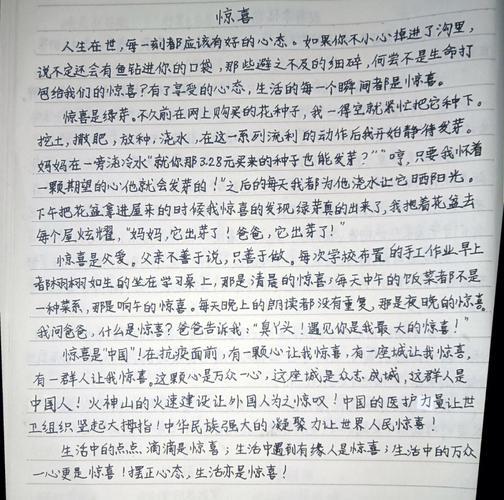 惊喜
人生在世,每一刻都应该有好的心态。如果你不小心掉进了沟里,
说不定还会有鱼钻进你的口袋,那些避之不及的细碎,何尝不是生命打
包给我们的惊喜?有了享受的心态,生活的每一个瞬间都是惊喜。
惊喜是绿芽。不久前在网上购买的花种子,我一得空就紧忙把它种下。
挖土,撒肥,放种,浇水,在这一系列流利的动作后我开始静待发芽。
妈妈在一旁泼冷水“就你那3.28元买来的种子也能发芽?”“哼,只要我怀着
一颗期望的心他就会发芽的!”之后的每天我都为他浇水让它晒阳光。
下午把花盆拿进屋来的时候我惊喜的发现绿芽真的出来了,我抱着花盆去
每个屋炫耀,“妈妈,它出芽了!爸爸,它出芽了!”
惊喜是父爱。父亲不善于说,只善于做。每次学校布置的手工作业早上
都栩栩如生的坐在学习桌上,那是清晨的惊喜;每天中午的饭菜都不是
一种菜系,那是晌午的惊喜。每天晚上的朗读都没有重复,那是夜晚的惊喜。
我问爸爸,什么是惊喜?爸爸告诉我:“臭丫头!遇见你是我最大的惊喜!”
惊喜是“中国”!在抗疫面前,有一颗心让我惊喜,有一座城让我惊喜,
有一群人让我惊喜。这颗心是万众一心,这座城是众志成城,这群人是
中国人!火神山的火速建设让外国人为之惊叹!中国的医护力量让世
卫组织竖起大拇指!中华民族强大的凝聚力让世界人民惊喜!
生活中的点点滴滴是惊喜;生活中遇到有缘人是惊喜;生活中的万众
一心更是惊喜!摆正心态,生活亦是惊喜!